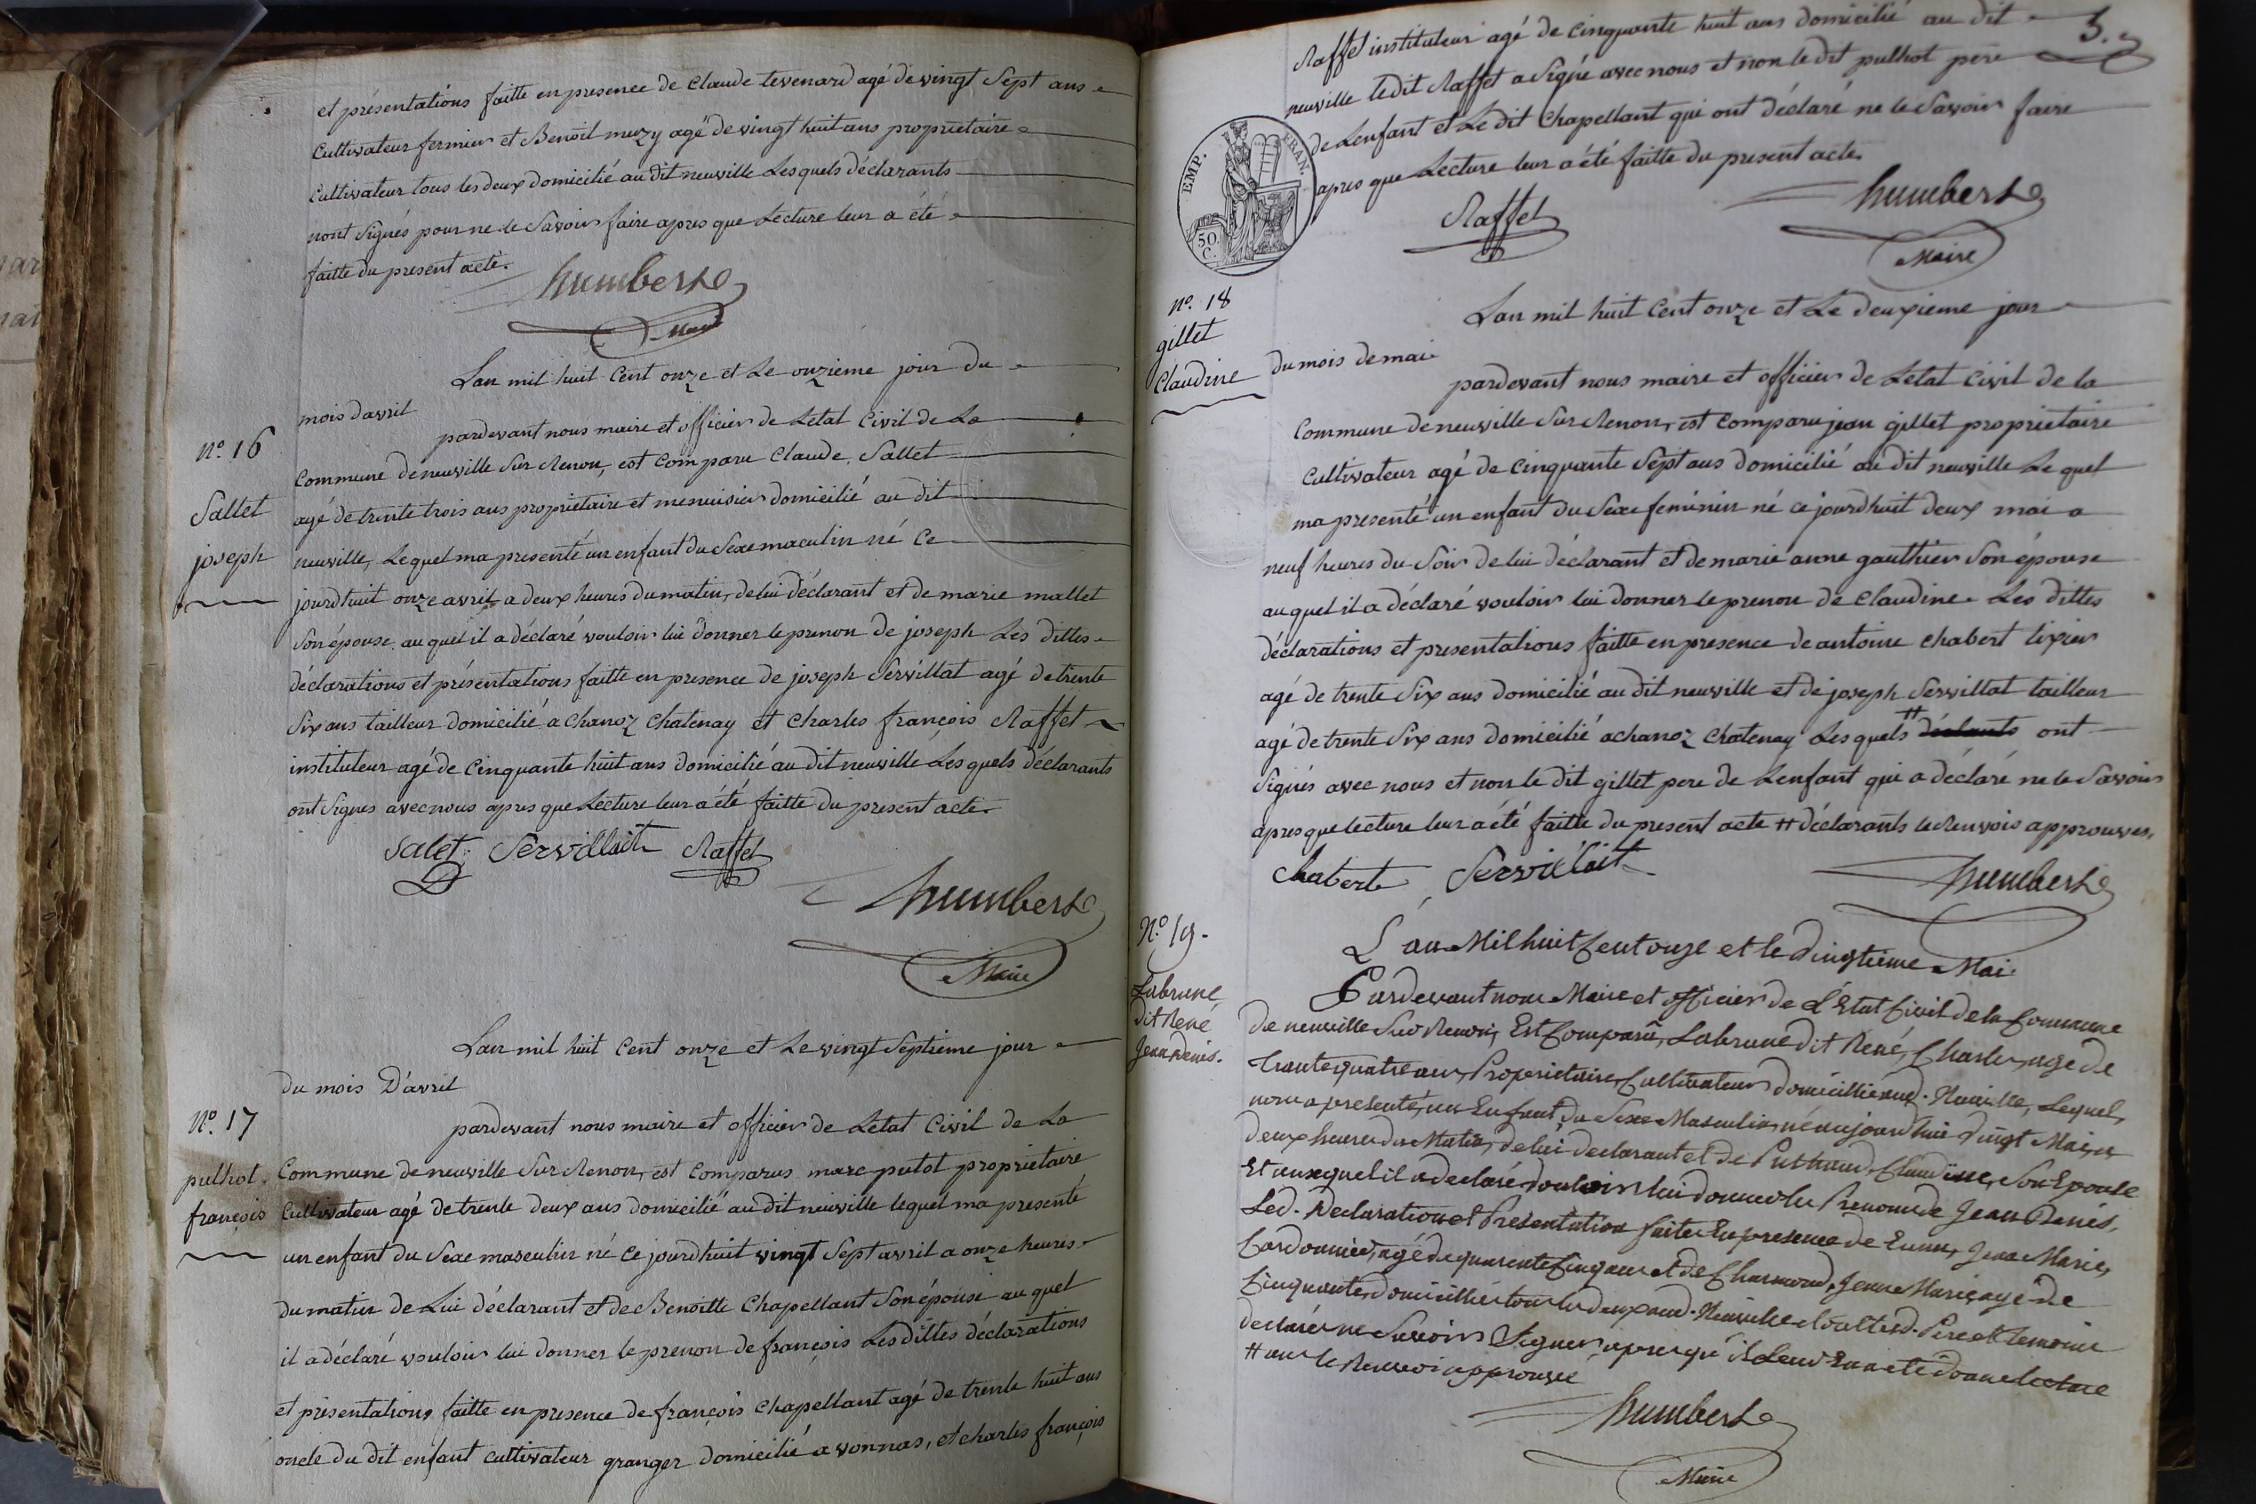 et présentations faitte en presence de Claude tevenard agé de vingt Sept ans
Cultivateur fermier et Benoit muzy agé de vingt huit ans propriétaire
Cultivateur tous les deux domicilié au dit neuville Les quels déclarants
nont Signés pour ne le Savoir faire apres que Lecture leur a été
faitte du present acte.
humbert
Maire
Lan mil huit Cent onze et Le onzieme jour du
mois davril
pardevant nous maire et officier de Létat Civil de La
Nº 16
Sallet
joseph
Commune de neuville Sur Renon, est Comparu Claude Sallet
agé de trente trois ans propriétaire et menuisier domicilié au dit
neuville, Lequel ma presenté un enfant du Sexe maculin né Ce
jourdhuit onze avril a deux heures du matin, de lui déclarant et de marie mallet
Son épouse au quel il a déclaré vouloir lui donner le prenon de joseph Les dittes
déclarations et présentations faitte en presence de joseph Servillat agé de trente
Six ans tailleur domicilié a chanoz Chatenay et Charles françois Raffet
instituteur agé de Cinquante huit ans domicilié au dit neuville Les quels déclarants
ont Signes avec nous apres que Lecture leur a été faitte du present acte.
Salet Servillait Raffet
humbert
Maire
Lan mil huit Cent onze et Le vingt Septieme jour
du mois D'avril
Nº 17
pulhot
françois
pardevant nous maire et officier de Létat Civil de La
Commune de neuville Sur Renon, est Comparus marc putot propriétaire
Cultivateur agé de trente deux ans domicilié au dit neuville lequel ma presenté
un enfant du Sexe masculin né Ce jourdhuit vingt Sept avril a onze heures
du matin de Lui déclarant et de Benoitte Chapellant Son épouse au quel
il a déclaré vouloir lui donner le prenon de françois Les dittes déclarations
et présentations faitte en presence de françois Chapellant agé de trente huit ans
oncle du dit enfant Cultivateur granger domicilié a vonnas, et charles françois
5.
Raffet instituteur agé de Cinquante huit ans domicilié au dit
neuville le dit Raffet a Signé avec nous et non le dit pulhot pere
de Lenfant et Le dit Chapellant qui ont déclaré ne le Savoir faire
apres que Lecture leur a été faitte du present acte.
EMP. FRAN.
50.
C.
Raffet
humbert
Maire
Nº 18
gillet
Claudine
Lan mil huit Cent onze et Le deuxieme jour
du mois de mai
pardevant nous maire et officier de Létat Civil de la
Commune de neuville Sur Renon, est Comparu jean gillet proprietaire
Cultivateur agé de Cinquante Sept ans domicilié au dit neuville Le quel
ma presenté un enfant du Sexe feminin né ce jourdhuit deux mai a
neuf heures du Soir de lui déclarant et de marie anne gauthier Son épouse
au quel il a déclaré vouloir lui donner le prenon de Claudine Les dittes
déclarations et presentations faitte en presence de antoine Chabert tixier
agé de trente Six ans domicilié au dit neuville et de joseph Servillat tailleur
agé de trente Six ans domicilié a chanoz Chatenay Les quels # ont
Signés avec nous et non le dit gillet pere de Lenfant qui a déclaré ne le Savoir
apres que lecture leur a été faitte du present acte # déclarants le Renvois approuves.
Chabert Servillait
humbert
Nº 19.
Labrune
dit René
Jean Denis.
L'an Mil huit Cent onze et le Vingtieme Mai
Pardevant nous Maire et officier de L'Etat Civil de la Commune
de neuville Sur Renon, Est Comparû, Labrune dit René, Charles, agé de
trente quatre ans, Proprietaire, Cultivateur domicillié aud. Neuville, Lequel,
nous a presenté, un Enfant, du Sexe Masculin, né aujourd'hui Vingt Mai, a
deux heures du Matin, de lui declarant et de Claudine, Son Epouse
Et auxequel il a declaré, Vouloir lui donner les Prenoms de Jean Denis,
Led. Declaration et Presentation faites En presence de Jean Marie,
Cordonnier, agé de quarente Cinq ans et de Jean Marie, agé de
Cinquante, domicilliés tous les deux aud. Neuville Pere et temoins
declaré ne Savoir Signer, apres qu'il Leur En a eté donne lecture
le Renvoi approuvé
humbert
Maire